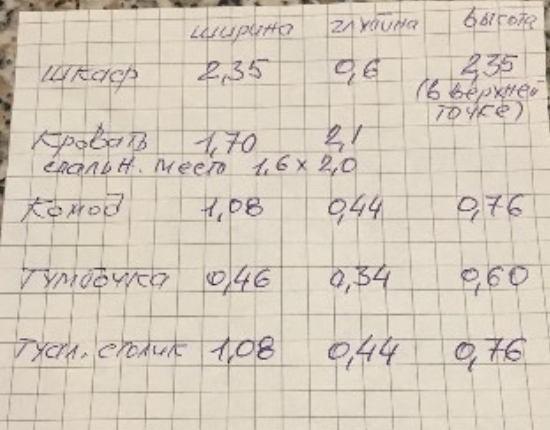 ширина глубина высота
шкаф 2,35 0,6 2,35
(в верхней
точке)
Кровать 1,70 2,1
спальн. место 1,6 x 2,0
Комод 1,08 0,44 0,76
Тумбочка 0,46 0,34 0,60
Туал. столик 1,08 0,44 0,76